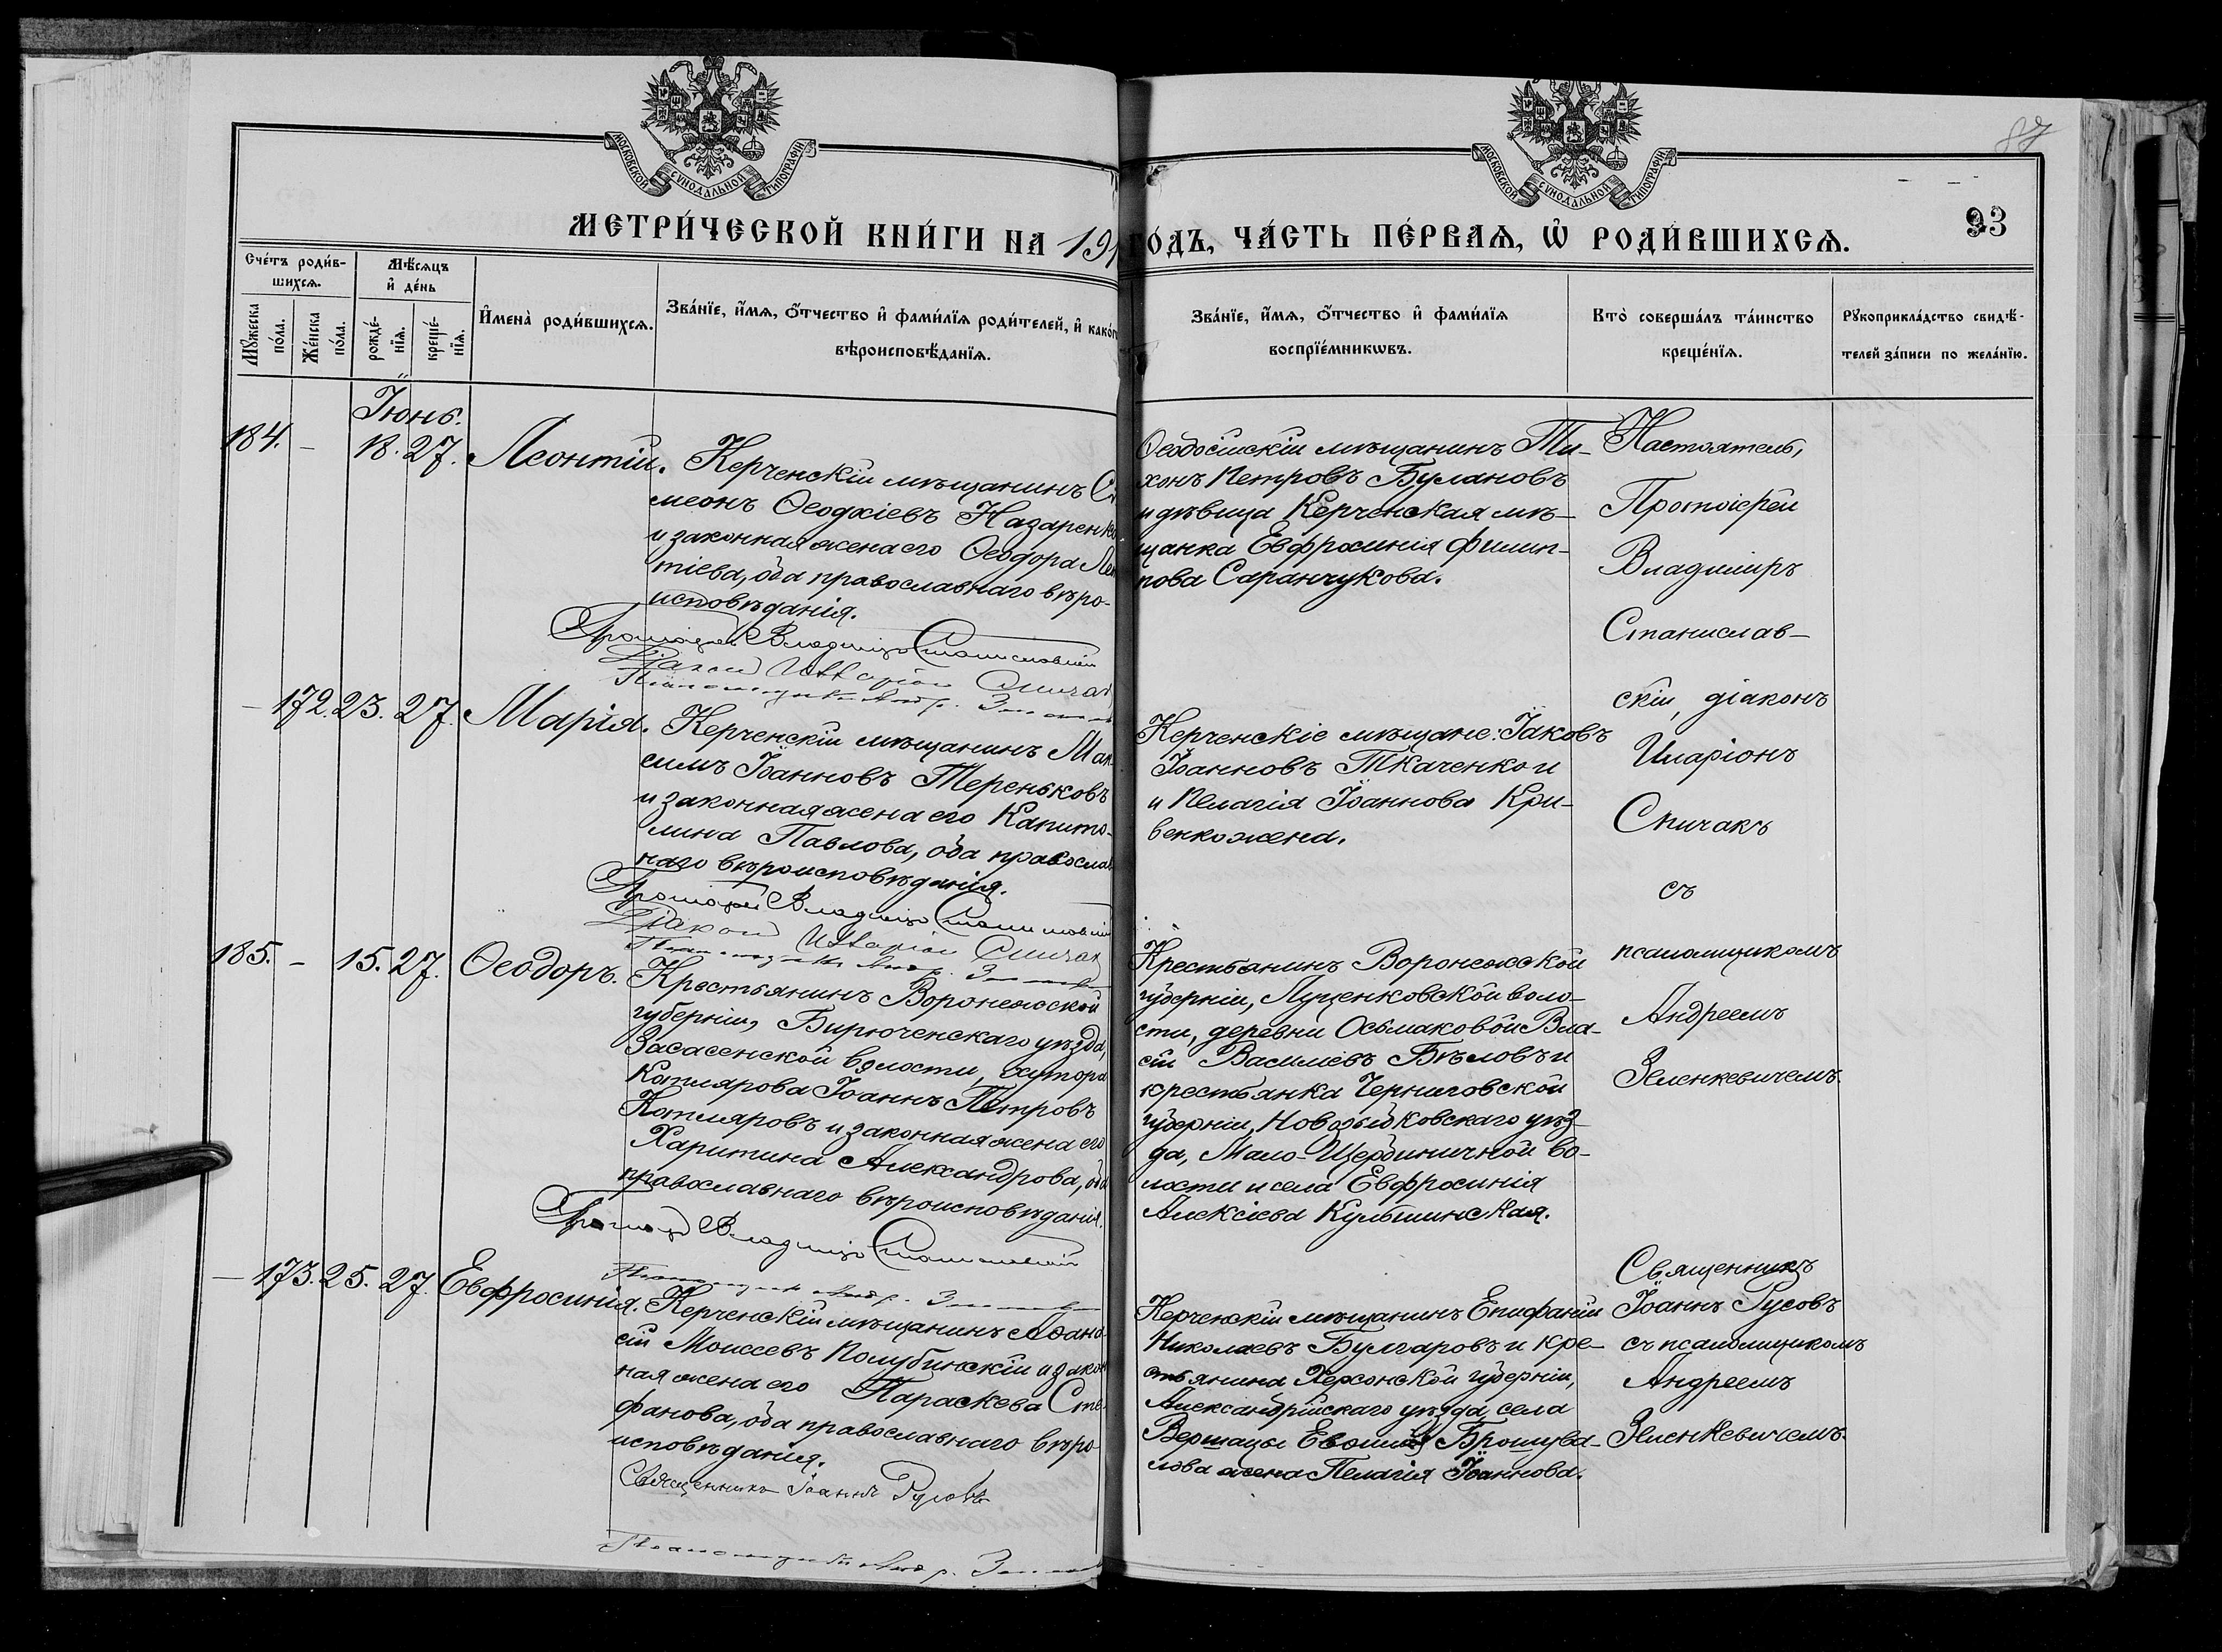 МОСКОВСКОЙ СѴНОДАЛЬНОЙ ТИПОГРАФІИ
МОСКОВСКОЙ СѴНОДАЛЬНОЙ ТИПОГРАФІИ
87
93
МЕТРИ́ЧЕСКОЙ КНИ́ГИ НА 191
ГО́ДЪ, ЧА́СТЬ ПЕ́РВАѦ, Ѡ҆ РОДИ́ВШИХСѦ.
Сче́тъ роди́в-
шихсѧ.
Мѣ́сѧцъ
и҆ де́нь
Мꙋ́жеска по́ла.
Же́нска по́ла.
рожде́-
нїѧ.
креще́-
нїѧ.
И҆мена̀ роди́вшихсѧ.
Зва́нїе, и҆́мѧ, ѻ҆́тчество и҆ фами́лїѧ роди́телей, и҆ како́г
вѣроисповѣ́данїѧ.
Зва́нїе, и҆́мѧ, ѻ҆́тчество и҆ фами́лїѧ
воспрїе́мникѡвъ.
Кто̀ соверша́лъ та́инство
креще́нїѧ.
Рꙋкоприкла́дство свидѣ́-
телей за́писи по жела́нїю.
Іюнь.
184. – 18. 27. Леонтій.
Керченскій мѣщанинъ Си
меонъ Ѳеодосіевъ Назаренко
и законная жена его Ѳеодора Леон
тіева, оба православнаго вѣро-
исповѣданія.
Протоіерей Владиміръ Станиславскій
Діаконъ Иларіонъ Спичакъ
Псаломщикъ Андр.
Ѳеодосійскій мѣщанинъ Ти-
хонъ Петровъ Булановъ
и дѣвица Керченская мѣ-
щанка Евфросинія Филип-
пова Саранчукова.
Настоятель,
Протоіерей
Владиміръ
Станислав-
скій, діаконъ
Иларіонъ
Спичакъ
съ
псаломщикомъ
Андреемъ
Зеленкевичемъ.
– 172. 23. 27. Марія.
Керченскій мѣщанинъ Мак
симъ Іоанновъ Тереньковъ
и законная жена его Капито-
лина Павлова, оба православ
наго вѣроисповѣданія.
Протоіерей Владиміръ Станиславскій
Діаконъ Иларіонъ Спичакъ
Псаломщикъ Андр.
Керченскіе мѣщане: Іаковъ
Іоанновъ Ткаченко и
и Пелагія Іоаннова Кри-
венко жена.
185. – 15. 27. Ѳеодоръ.
Крестьянинъ Воронежской
губерніи, Бирюченскаго уѣзда,
Засасенской волости, хутора
Котлярова Іоаннъ Петровъ
Котляровъ и законная жена его
Харитина Александрова, оба
православнаго вѣроисповѣданія.
Протоіерей Владиміръ Станиславскій
Псаломщикъ Андр.
Крестьянинъ Воронежской
губерніи, Луценковской воло-
сти, деревни Осьмаковой Вла-
сій Василіевъ Бѣловъ и
крестьянка Черниговской
губерніи, Новозыбковскаго уѣз-
да, Мало-Щербиничной во-
лости и села Евфросинія
Алексіева Кульшинская.
– 173. 25. 27. Евфросинія.
Керченскій мѣщанинъ Аѳана
сій Моисеевъ Полубинскій и закон
ная жена его Параскева Сте
фанова, оба православнаго вѣро-
исповѣданія.
Священникъ Іоаннъ Русовъ
Псаломщикъ Андр.
Керченскій мѣщанинъ Епифаній
Николаевъ Булгаровъ и кре-
стьянина Херсонской губерніи,
Александрійскаго уѣзда, села
Вершацы
лова жена Пелагія Іоаннова.
Священникъ
Іоаннъ Русовъ
съ псаломщикомъ
Андреемъ
Зеленкевичемъ.